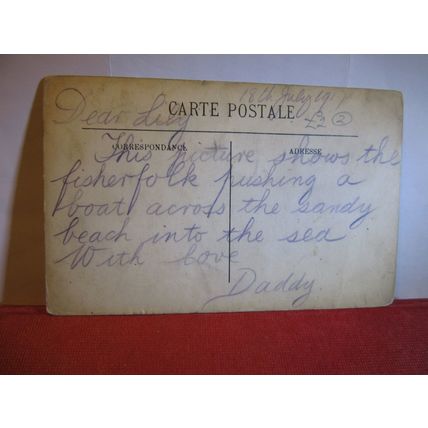 18th July 191
Dear Lucy
CARTE POSTALE
£2 ②
CORRESPONDANCE
ADRESSE
This picture shows the
fisherfolk pushing a
boat across the sandy
beach into the sea
With love
Daddy